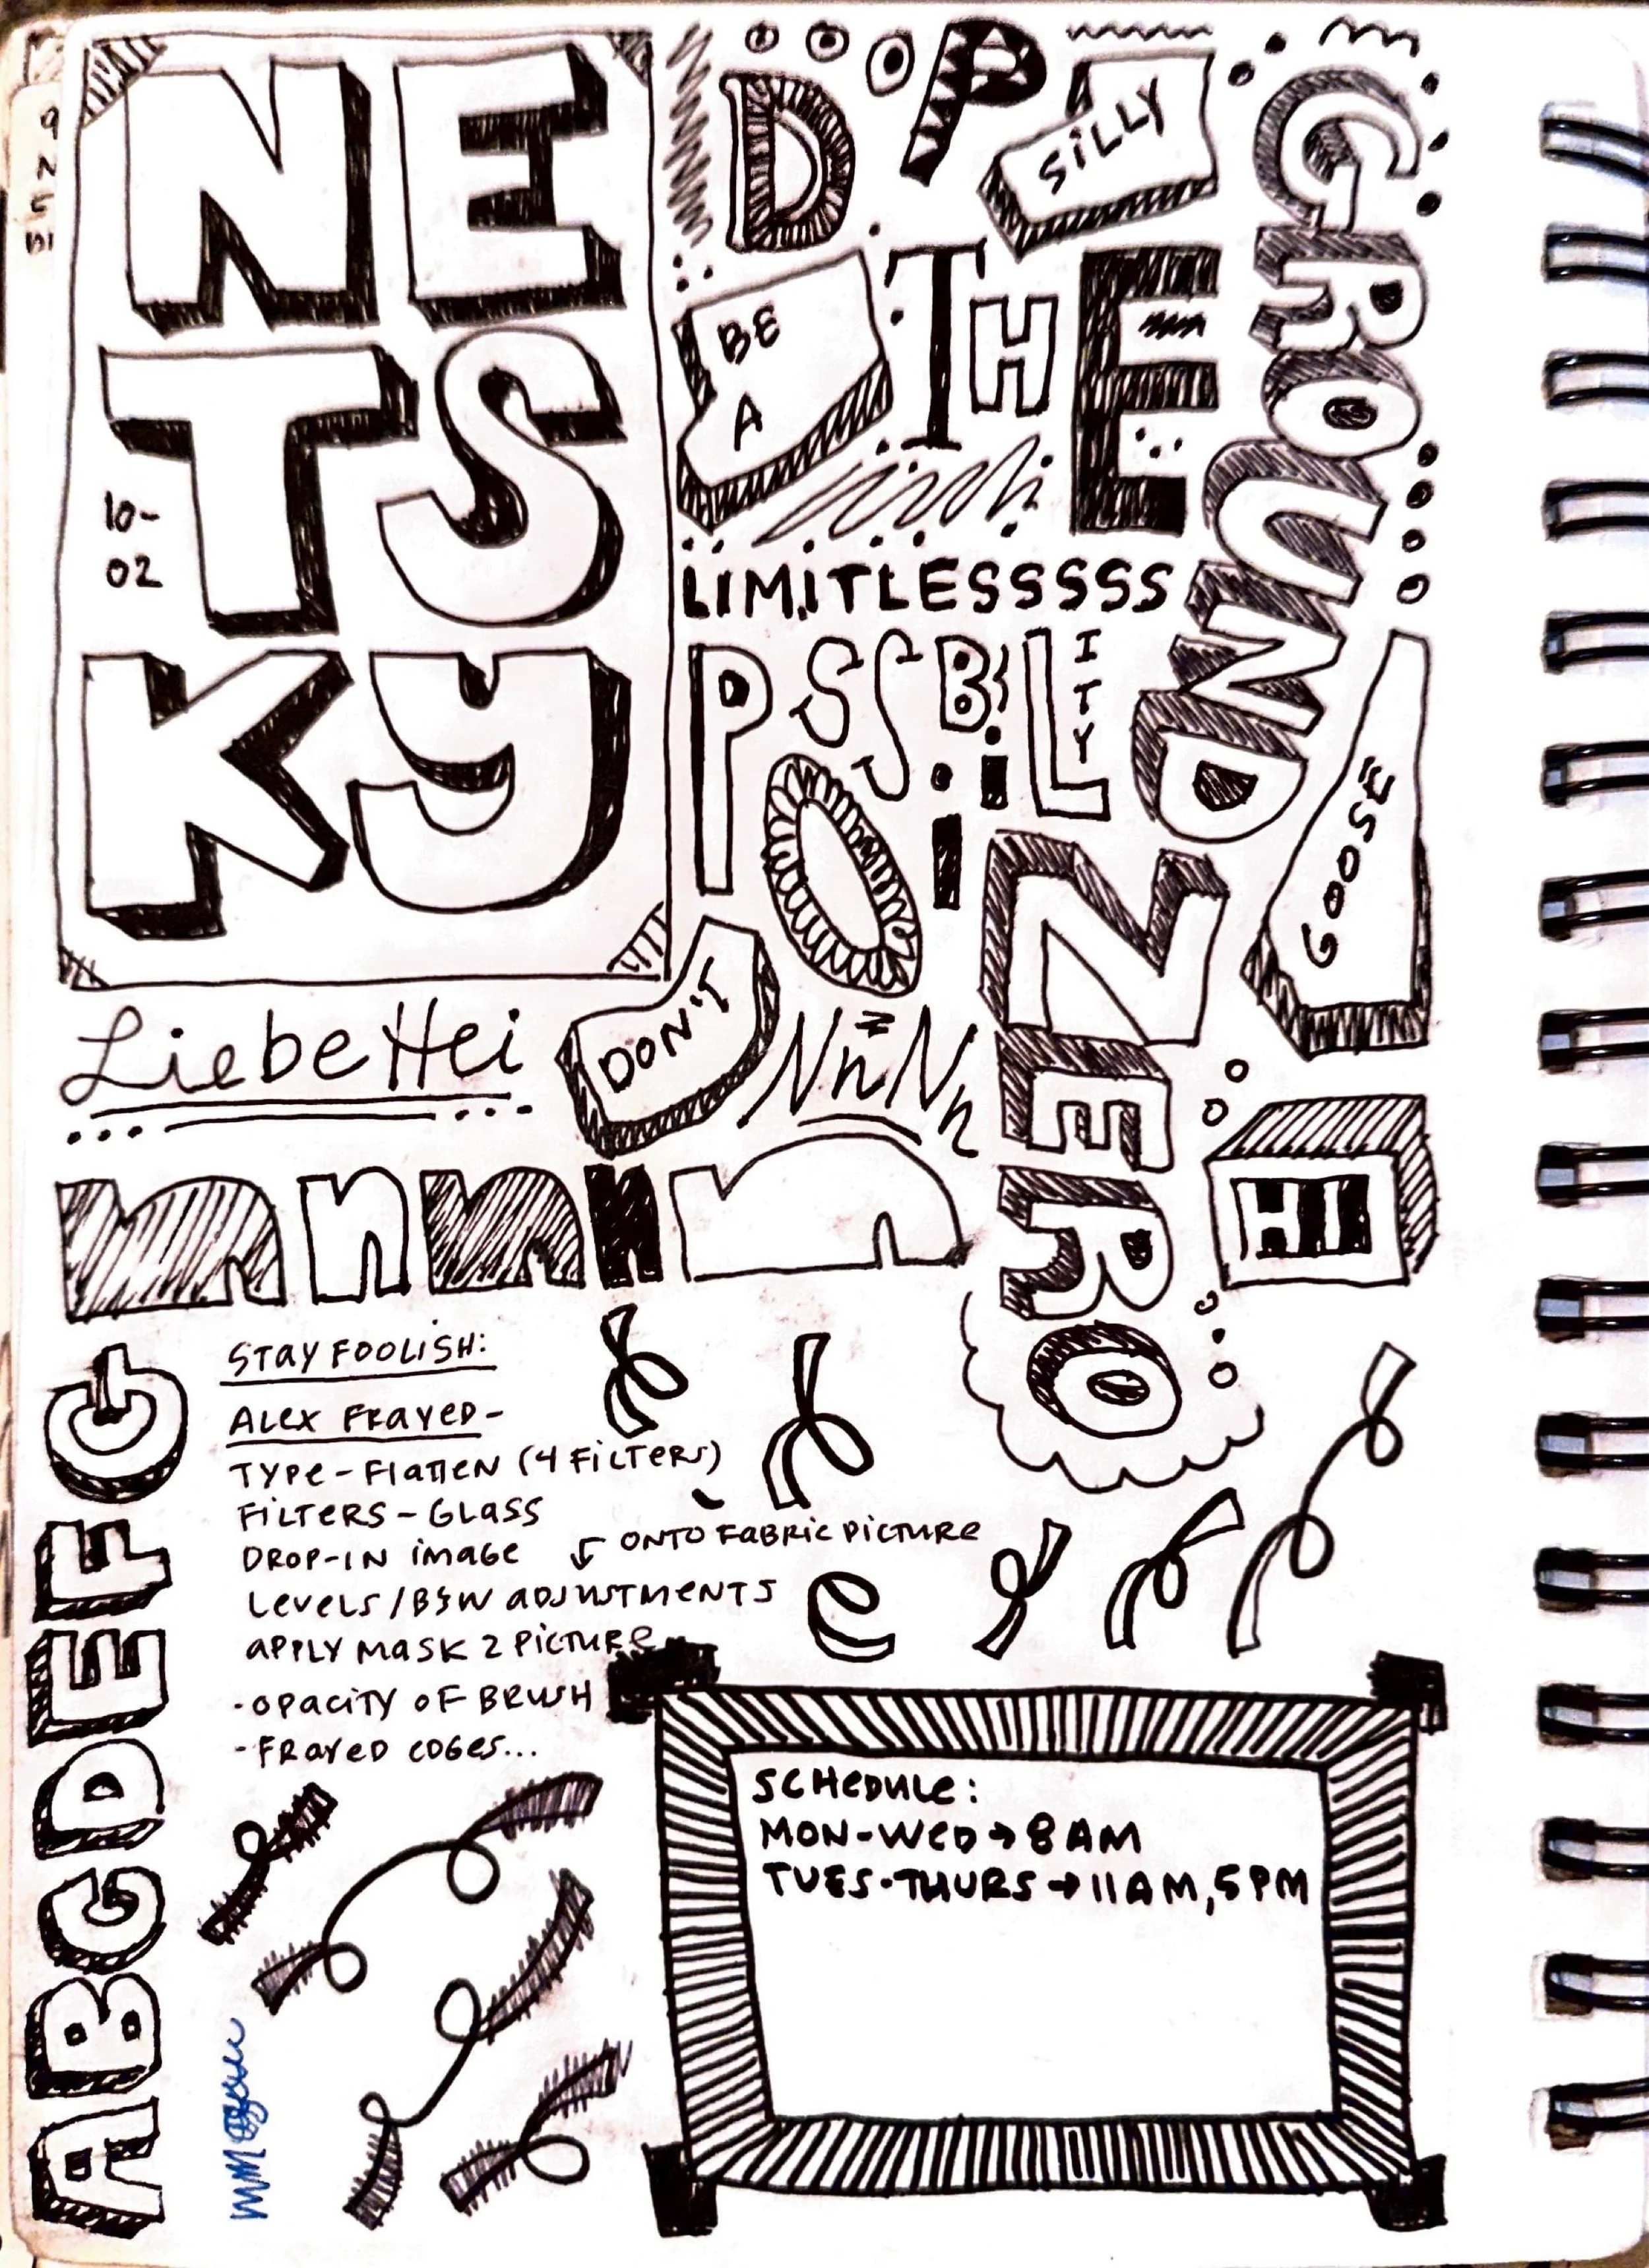 NE
TS
KY
10-
02
9
N
DP
SILLY
BE
A
THE
LIMITLESSSSS
POSSIBILITY
GROUND
ZERO
GOOSE
DON'T
HI
Liebe Hei
NnNn
nnnnn
STAY FOOLISH:
ALEX FRAYED-
TYPE-FLATTEN (4 FILTERS)
FILTERS-GLASS
DROP-IN IMAGE
ONTO FABRIC PICTURE
LEVELS/B&W ADJUSTMENTS
APPLY MASK 2 PICTURE
-OPACITY OF BRUSH
-FRAYED EDGES...
ABCDEFG
SCHEDULE:
MON-WED→8AM
TUES-THURS→11AM,5PM